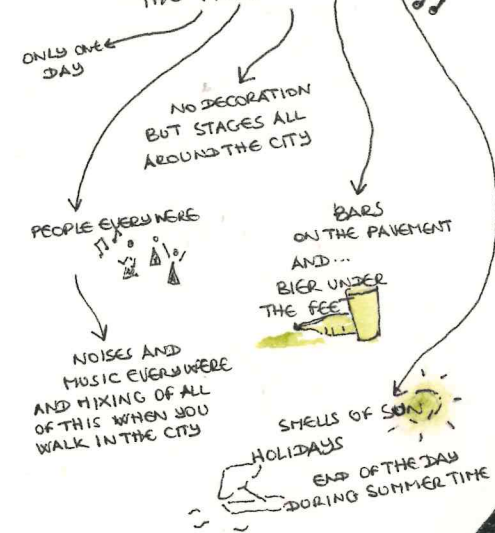 ONLY ONE
DAY
NO DECORATION
BUT STAGES ALL
AROUND THE CITY
PEOPLE EVERYWERE
BARS
ON THE PAVEMENT
AND...
BIER UNDER
THE FEET
NOISES AND
MUSIC EVERYWERE
AND MIXING OF ALL
OF THIS WHEN YOU
WALK IN THE CITY
SMELLS OF SUN
HOLIDAYS
END OF THE DAY
DURING SUMMER TIME